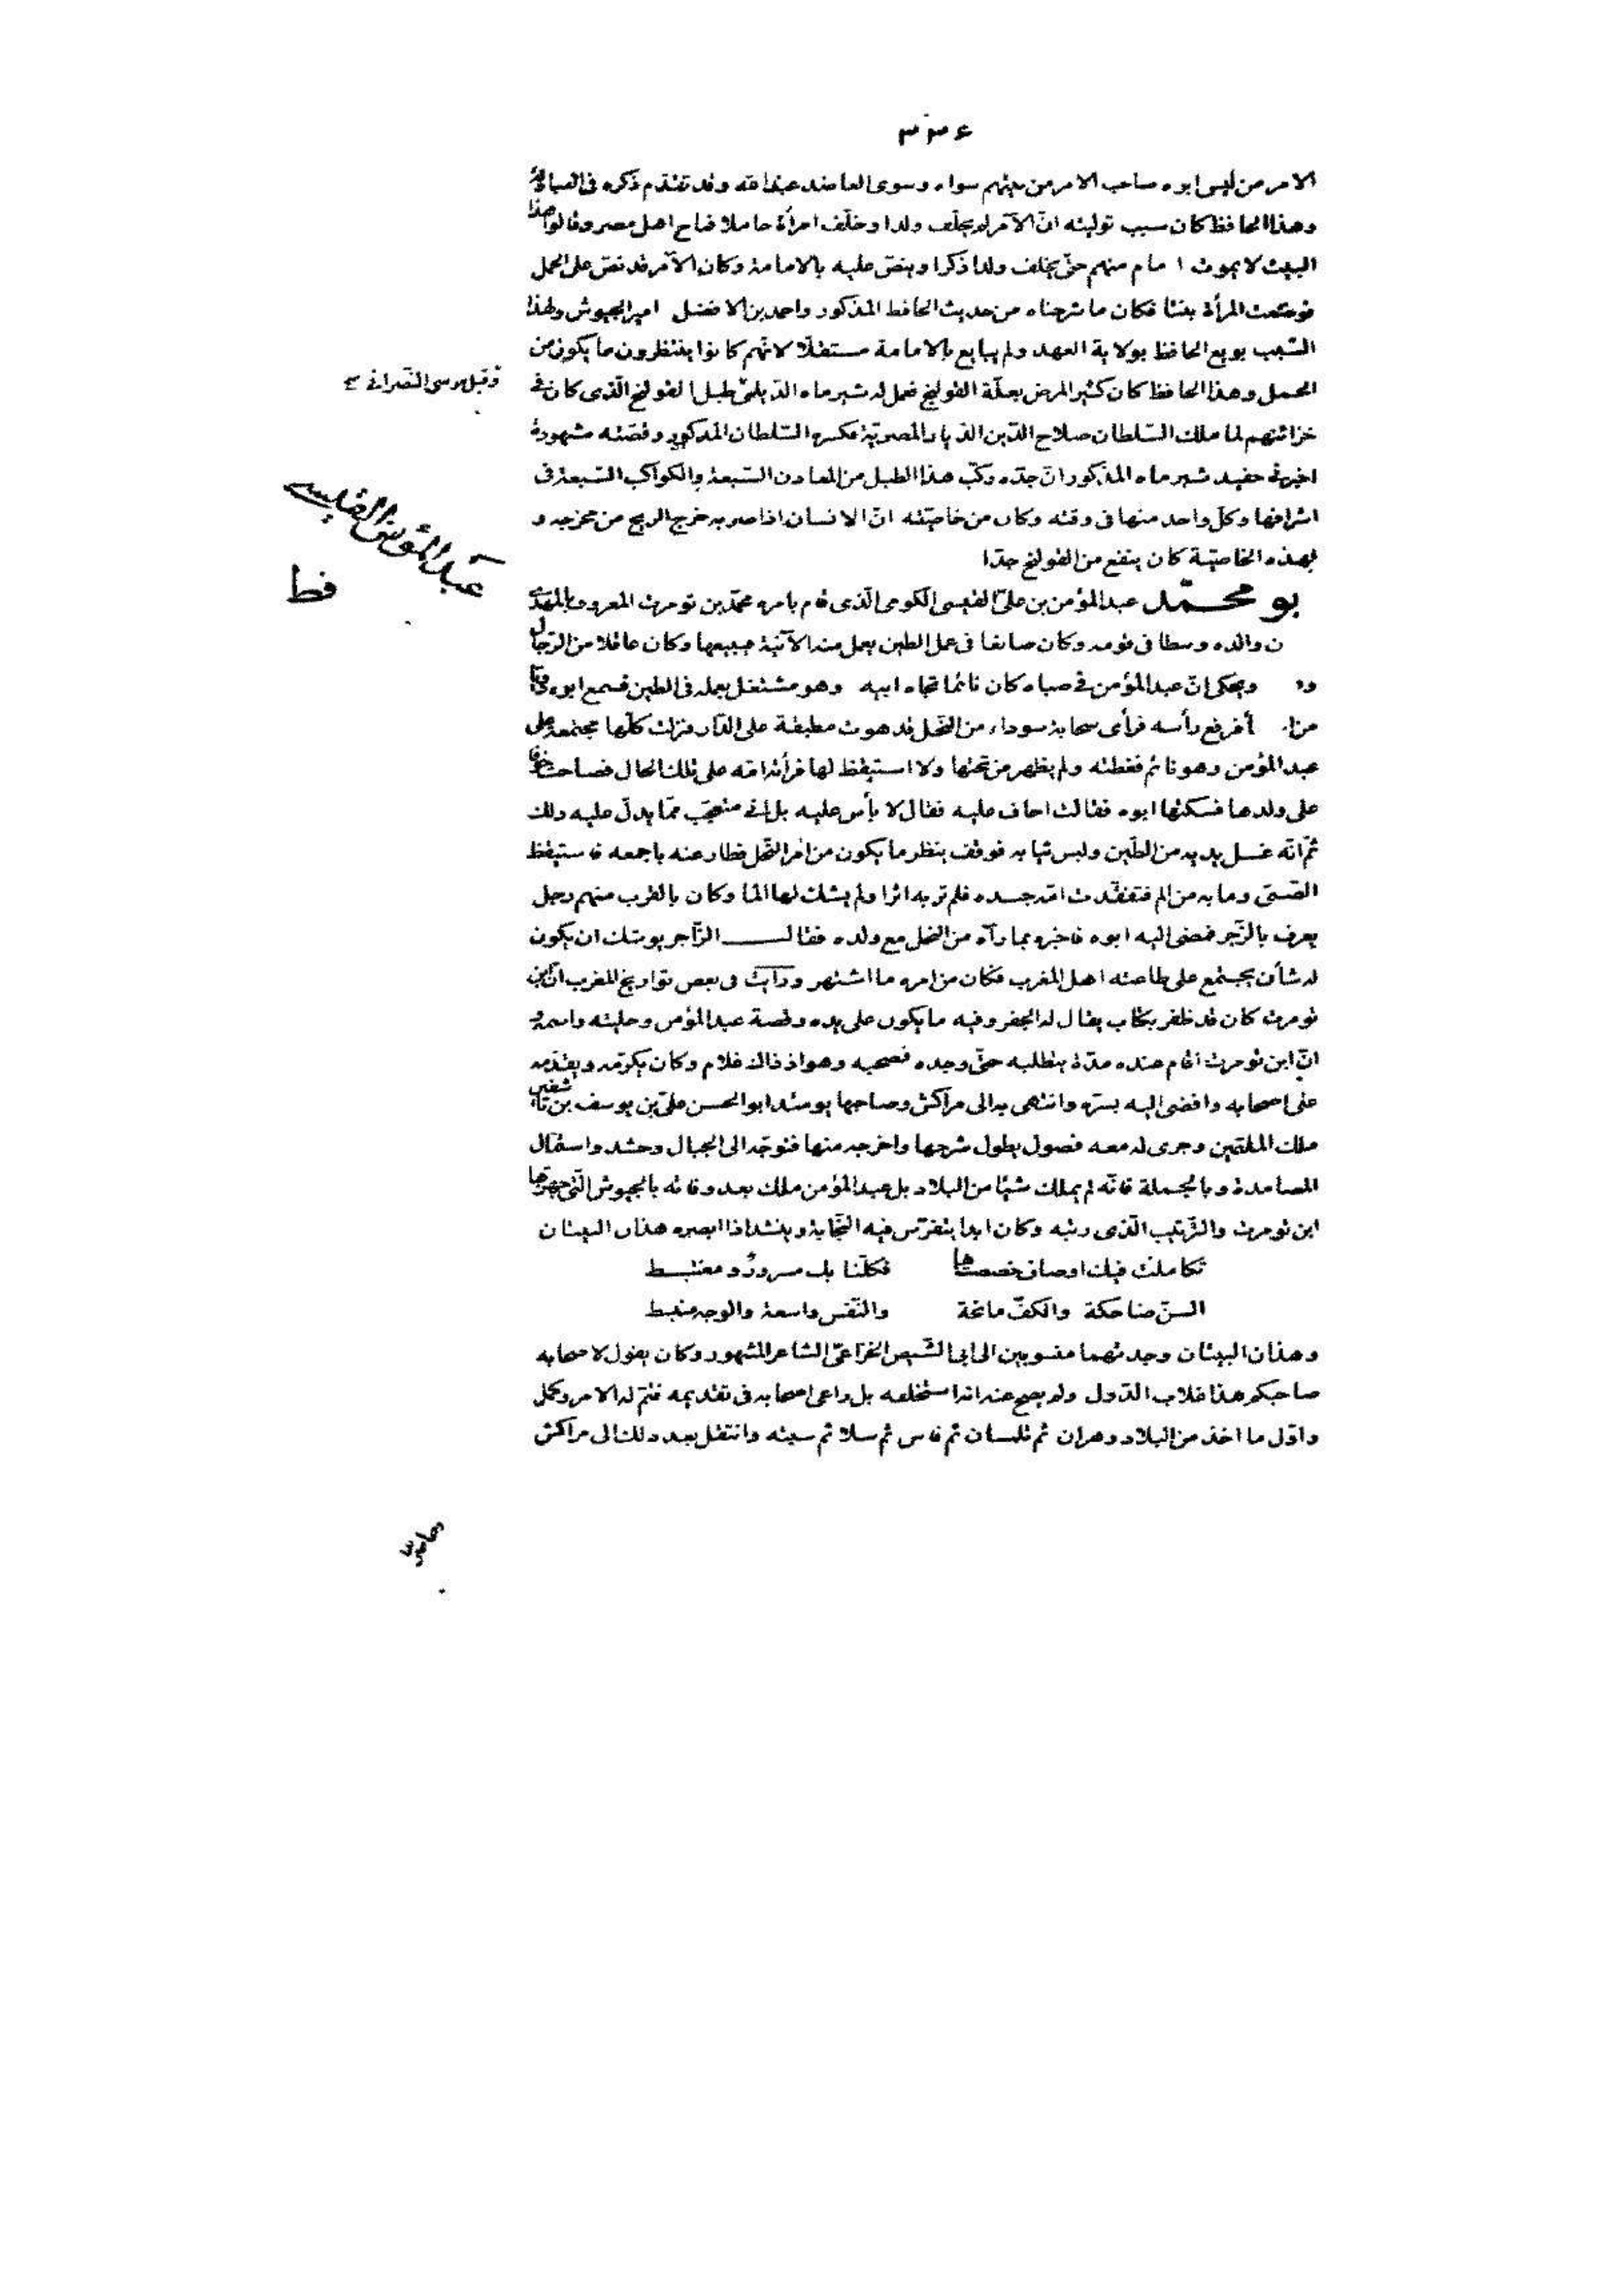 ٣٣٤
الامر من ليس ابوه صاحب الامر من بينهم سواه وسوى العاضد عبد الله وقد تقدّم ذكره فى العبادلة
وهذا الحافظ كان سبب توليته انّ الآمر لم يخلّف ولدا وخلّف امرأة حاملا فماج اهل مصر وقالوا هذا
البيت لا يموت امام منهم حتّى يخلف ولدا ذكرا وينصّ عليه بالامامة وكان الآمر قد نصّ على الحمل
فوضعت المرأة بنتا فكان ما شرحناه من حديث الحافظ المذكور واحمد بن الافضل امير الجيوش ولهذا
السّبب بويع الحافظ بولاية العهد ولم يبايع بالامامة مستقلّا لانّهم كانوا ينتظرون ما يكون من
الحمل وهذا الحافظ كان كثير المرض بعلّة القولنج فعمل له شيرماه الديلمىّ طبل القولنج الّذى كان فى
وقيل موسى النّصرانى
خزائنهم لما ملك السّلطان صلاح الدّين الديار المصريّة فكسره السّلطان المذكور وقصّته مشهورة
اخبرنى حفيد شيرماه المذكور انّ جدّه ركّب هذا الطبل من المعادن السّبعة والكواكب السّبعة فى
اشرافها وكلّ واحد منها فى وقته وكان من خاصّته انّ الانسان اذا ضربه خرج الريح من مخرجه و
لهذه الخاصيّة كان ينفع من القولنج جدّا
عبد المؤمن القيسى
فط
بو محمّد عبد المؤمن بن علىّ القيسى الكومى الّذى قام بامره محمّد بن تومرت المعروف بالمهدى
ن والده وسطا فى قومه وكان صانعا فى عمل الطين يعمل منه الآنية فيبيعها وكان عاقلا من الرّجال
ويحكى انّ عبد المؤمن فى صباه كان نائما تجاه ابيه وهو مشتغل بعمله فى الطين فسمع ابوه دويّا
فرفع رأسه فرأى سحابة سوداء من النّحل قد هوت مطبقة على الدّار فنزلت كلّها مجتمعة على
عبد المؤمن وهو نائم فغطته ولم يظهر من تحتها ولا استيقظ لها فرأته امّه على تلك الحال فصاحت خوفا
على ولدها فسكتها ابوه فقالت اخاف عليه فقال لا بأس عليه بل انى متعجّب ممّا يدلّ عليه ذلك
ثمّ انّه غسل يديه من الطّين ولبس ثيابه فوقف ينظر ما يكون من امر النّحل فطار عنه باجمعه فاستيقظ
الصّبى وما به من الم فتفقّدت امّه جسده فلم تر به اثرا ولم يشك لها الما وكان بالقرب منهم رجل
يعرف بالزّجر فمضى اليه ابوه فاخبره بما رآه من النحل مع ولده فقال الزّاجر يوشك ان يكون
له شأن يجتمع على طاعته اهل المغرب فكان من امره ما اشتهر ورأيت فى بعض تواريخ المغرب انّ ابن
تومرت كان قد ظفر بكتاب يقال له الجفر وفيه ما يكون على يده وقصة عبد المؤمن وحليته واسمه و
انّ ابن تومرت اقام عنده مدّة يتطلبه حتّى وجده فصحبه وهو اذ ذاك غلام وكان يكرّمه ويقدّمه
على اصحابه وافضى اليه بسرّه وانتهى به الى مراكش وصاحبها يومئذ ابو الحسن علىّ بن يوسف بن تاشفين
ملك الملثمين وجرى له معه فصول يطول شرحها واخرجه منها فتوجّه الى الجبال وحشد واستمال
المصامدة وبالجملة فانّه لم يملك شيئا من البلاد بل عبد المؤمن ملك بعد وفاته بالجيوش الّتى جهزها
ابن تومرت والتّرتيب الّذى رتبه وكان ابدا يتفرّس فيه النّجابة وينشد اذا ابصره هذان البيتان
تكاملت فيك اوصاف خصصت بها فكلّنا بك مسرورٌ ومغتبط
السنّ ضاحكة والكفّ مانحة والنّفس واسعة والوجه منبسط
وهذان البيتان وجدتهما منسوبين الى ابى الشّيص الخزاعىّ الشاعر المشهور وكان يقول لاصحابه
صاحبكم هذا غلاب الدّول ولم يصح عنه انه استخلفه بل راعى اصحابه فى تقديمه فتمّ له الامر وكمل
واوّل ما اخذ من البلاد وهران ثم تلمسان ثم فاس ثم سلا ثم سبته وانتقل بعد ذلك الى مراكش